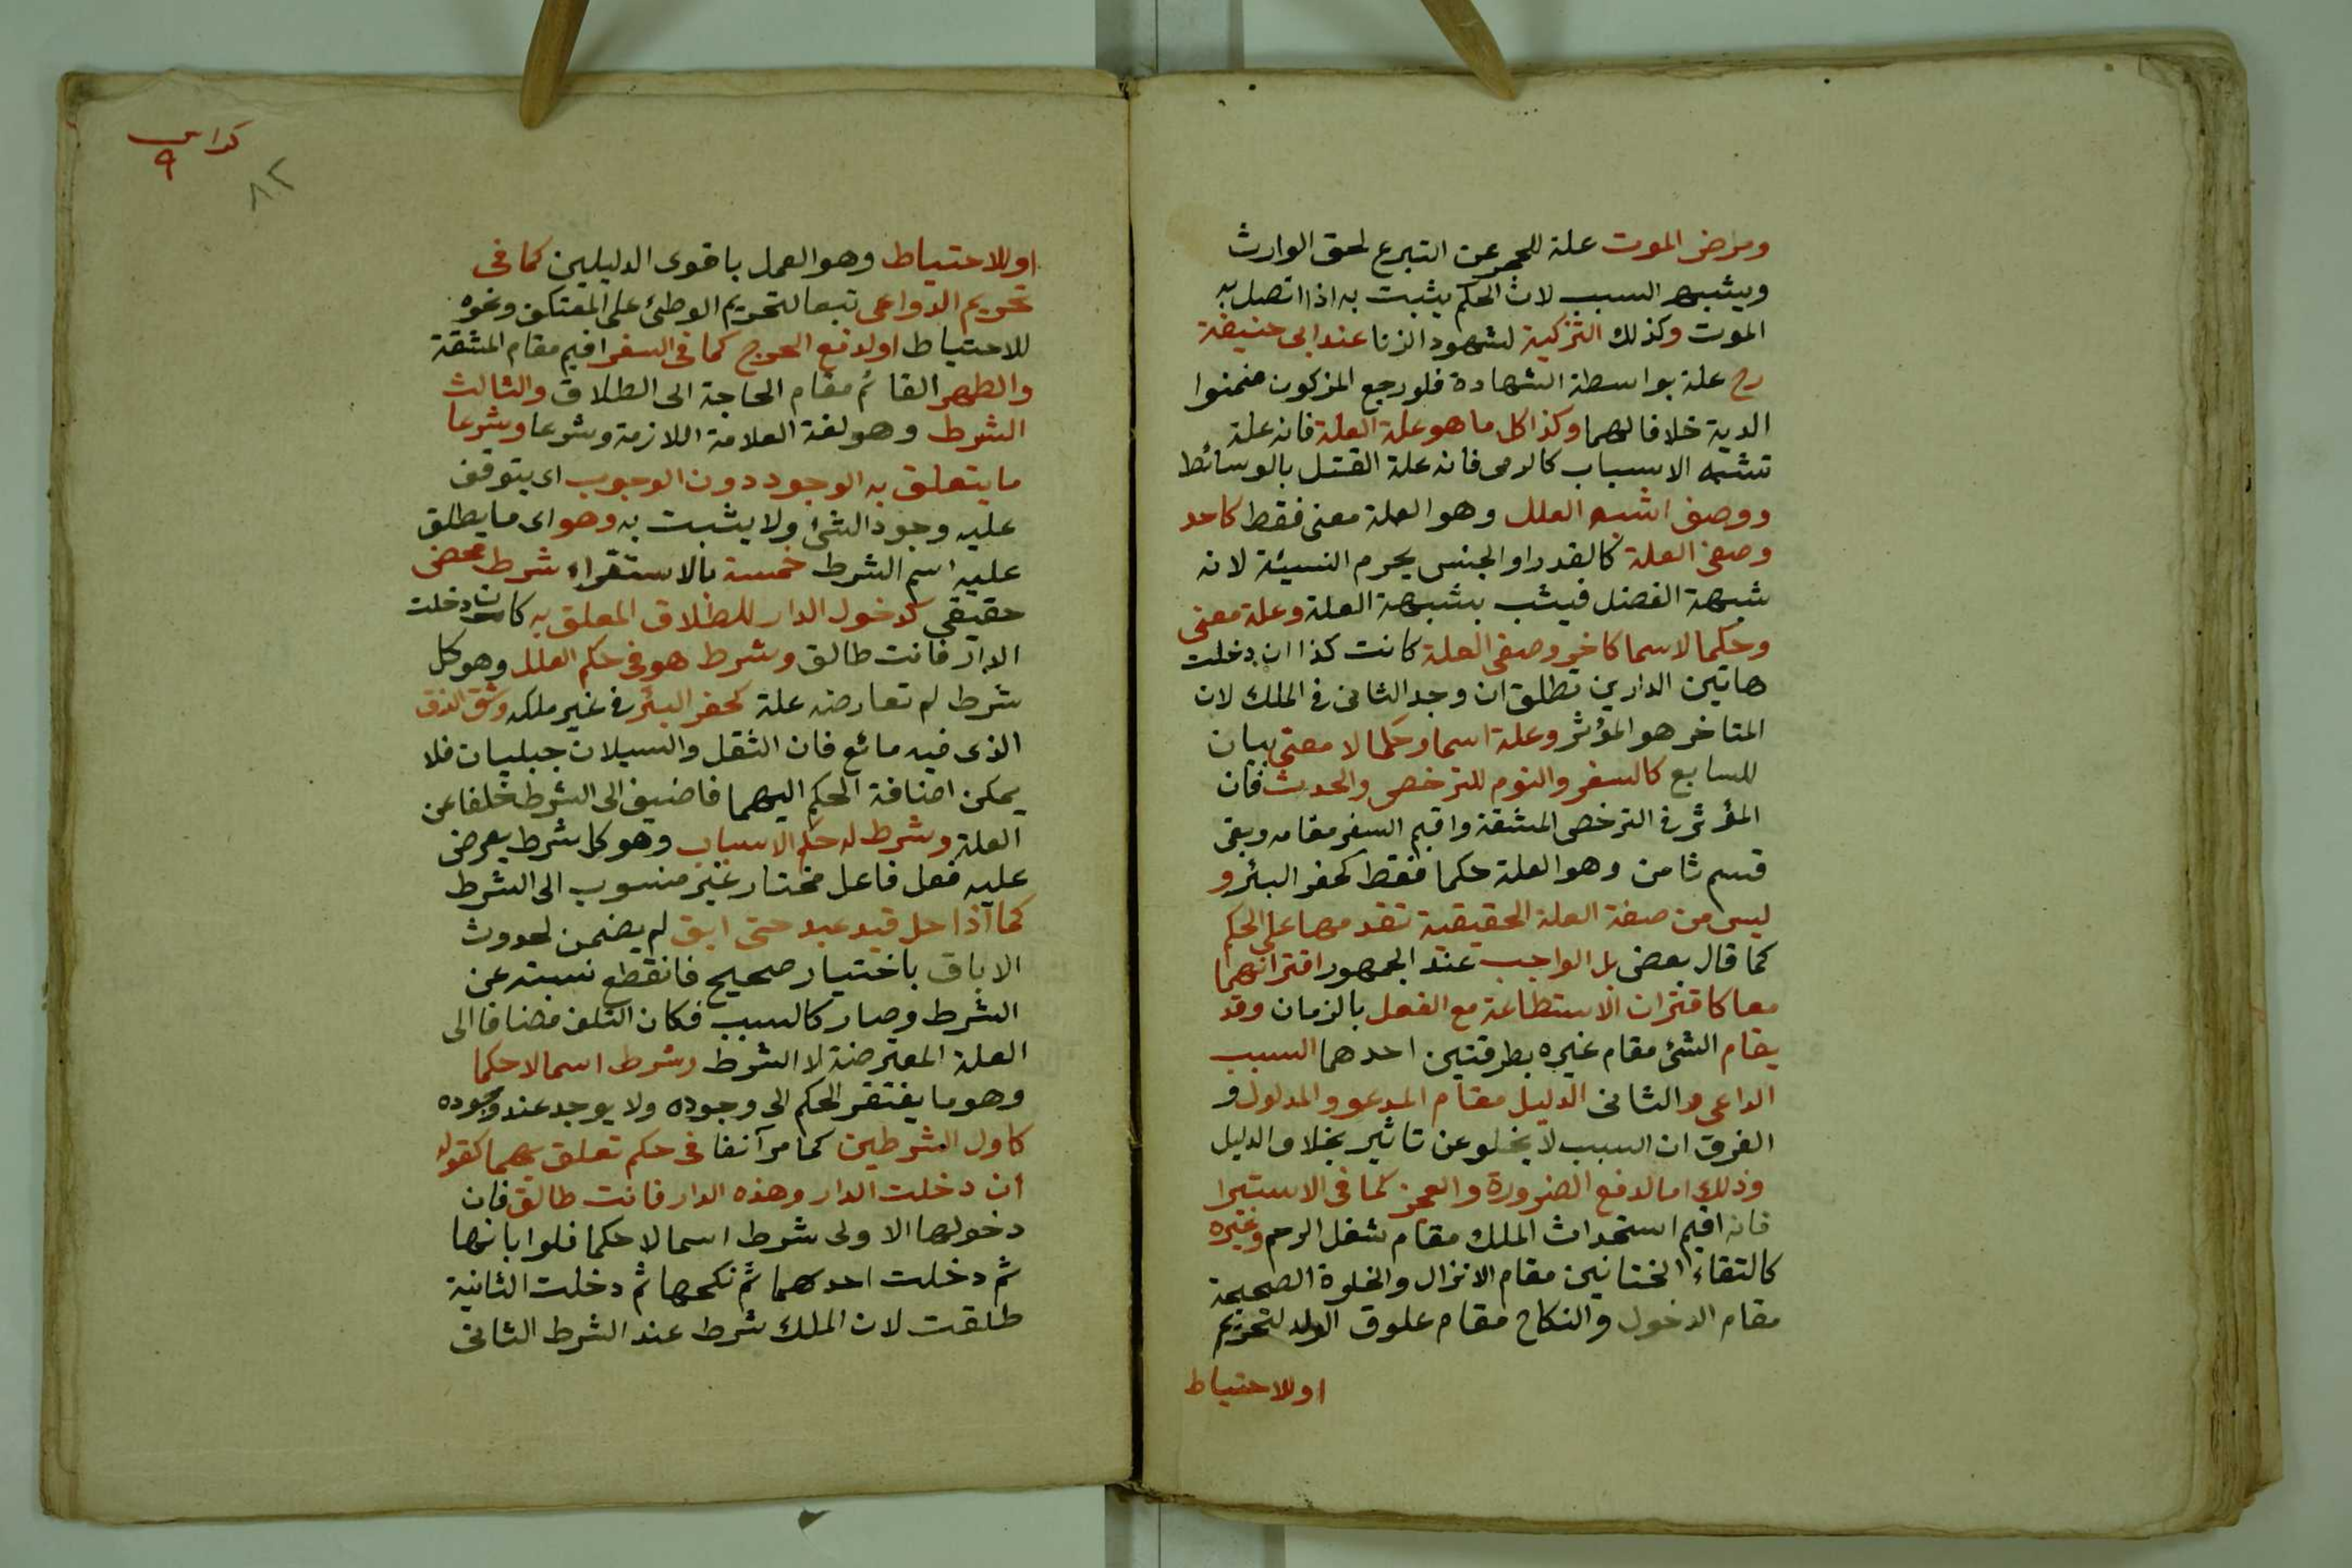 ومرض الموت علة للحجر عن التبرع لحق الوارث
ويشبه السبب لان الحكم يثبت به اذا اتصل به
الموت وكذلك التزكية لشهود الزنا عند ابى حنيفة
رح علة بواسطة الشهادة فلو رجع المزكون ضمنوا
الدية خلافا لهما وكذا كل ما هو علة العلة فانه علة
تشبه الاسباب كالرمى فانه علة القتل بالوسائط
ووصف اشبه العلل وهو العلة معنى فقط كاحد
وصفى العلة كالقدر او الجنس يحرم النسيئة لانه
شبهة الفضل فيثبت بشبهة العلة وعلة معنى
وحكما لا سما كاخر وصفى العلة كانت كذا ان دخلت
هاتين الدارين تطلق ان وجد الثانى فى الملك لان
المتاخر هو المؤثر وعلة اسما وحكما لا معنى بيان
للسابع كالسفر والنوم للترخص والحدث فان
المؤثر فى الترخص المشقة واقيم السفر مقامه وبقى
قسم ثامن وهو العلة حكما فقط كحفر البئر و
ليس من صفة العلة الحقيقية تقدمها على الحكم
كما قال بعض بل الواجب عند الجمهور اقترانهما
معا كاقتران الاستطاعة مع الفعل بالزمان وقد
يقام الشئ مقام غيره بطريقتين احدهما السبب
الداعى والثانى الدليل مقام المدعو والمدلول و
الفرق ان السبب لا يخلو عن تاثير بخلاف الدليل
وذلك اما لدفع الضرورة والعجز كما فى الاستبرا
فانه اقيم استحداث الملك مقام شغل الرحم وغيره
كالتقاء الختانين مقام الانزال والخلوة الصحيحة
مقام الدخول والنكاح مقام علوق الولد لتحريم
او للاحتياط
كراس
٩
٨٢
او للاحتياط وهو العمل باقوى الدليلين كما فى
تحريم الدواعى تبعا لتحريم الوطئ على المعتكف ونحوه
للاحتياط او لدفع الحرج كما فى السفر اقيم مقام المشقة
والطهر القائم مقام الحاجة الى الطلاق والثالث
الشرط وهو لغة العلامة اللازمة وشرعا وشرعا
ما يتعلق به الوجود دون الوجوب اى يتوقف
عليه وجود الشئ ولا يثبت به وهو اى ما يطلق
عليه اسم الشرط خمسة بالاستقراء شرط محض
حقيقى كدخول الدار للطلاق المعلق به كان دخلت
الدار فانت طالق وشرط هو فى حكم العلل وهو كل
شرط لم تعارضه علة كحفر البئر فى غير ملكه وشق الزق
الذى فيه مائع فان الثقل والسيلان جبليان فلا
يمكن اضافة الحكم اليهما فاضيف الى الشرط خلفا عن
العلة وشرط له حكم الاسباب وهو كل شرط يعرض
عليه فعل فاعل مختار غير منسوب الى الشرط
كما اذا حل قيد عبد حتى ابق لم يضمن لحدوث
الاباق باختيار صحيح فانقطع نسبته عن
الشرط وصار كالسبب فكان التلف مضافا الى
العلة المعترضة لا الشرط وشرط اسما لا حكما
وهو ما يفتقر الحكم الى وجوده ولا يوجد عند وجوده
كاول الشرطين كما مر آنفا فى حكم تعلق بهما كقوله
ان دخلت الدار وهذه الدار فانت طالق فان
دخولها الاولى شرط اسما لا حكما فلو ابانها
ثم دخلت احدهما ثم نكحها ثم دخلت الثانية
طلقت لان الملك شرط عند الشرط الثانى